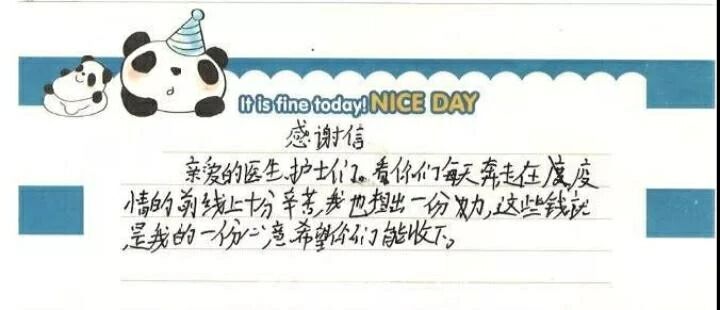 It is fine today! NICE DAY
感谢信
亲爱的医生、护士们。看你们每天奔走在疫
情的前线上十分辛苦,我也想出一份力,这些钱就
是我的一份心意希望你们能收下。